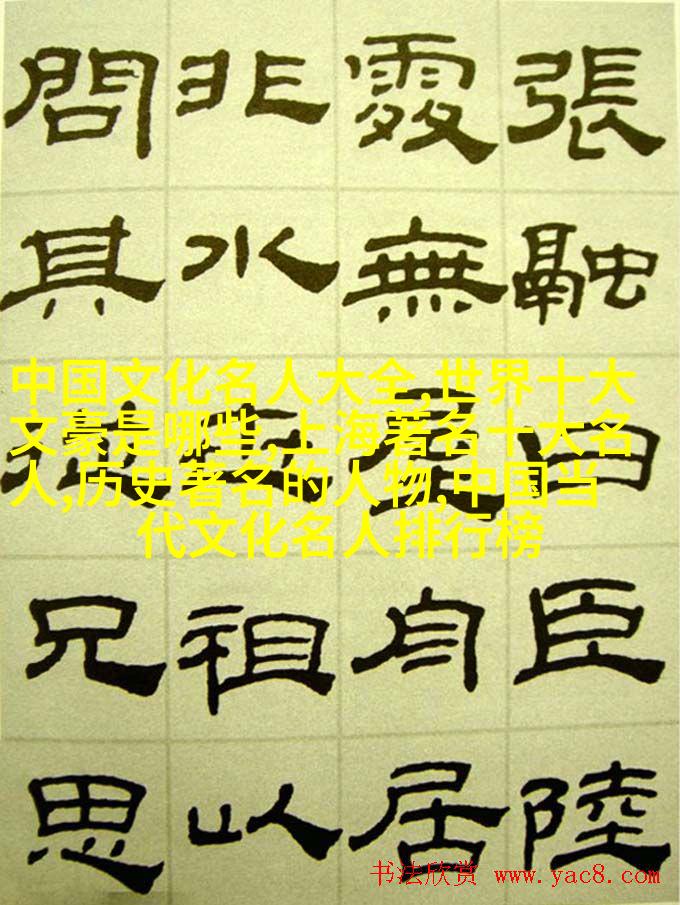 張融曰臣陸
處無屋舟居
非水祖以
問其從兄思
中国文化名人大全,世界十大
文豪是哪些,上海著名十大名
人,历史著名的人物,中国当
代文化名人排行榜
书法欣赏 www.yac8.com